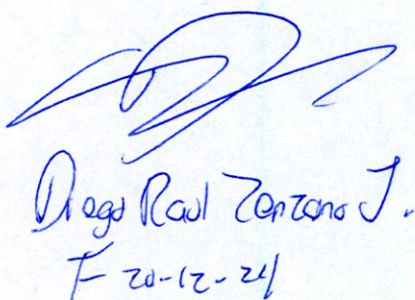 Diego Raul Zenzano J.
F- 20-12-24